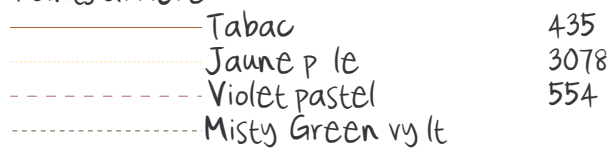 Tabac 435
Jaune p le 3078
Violet pastel 554
Misty Green vy lt